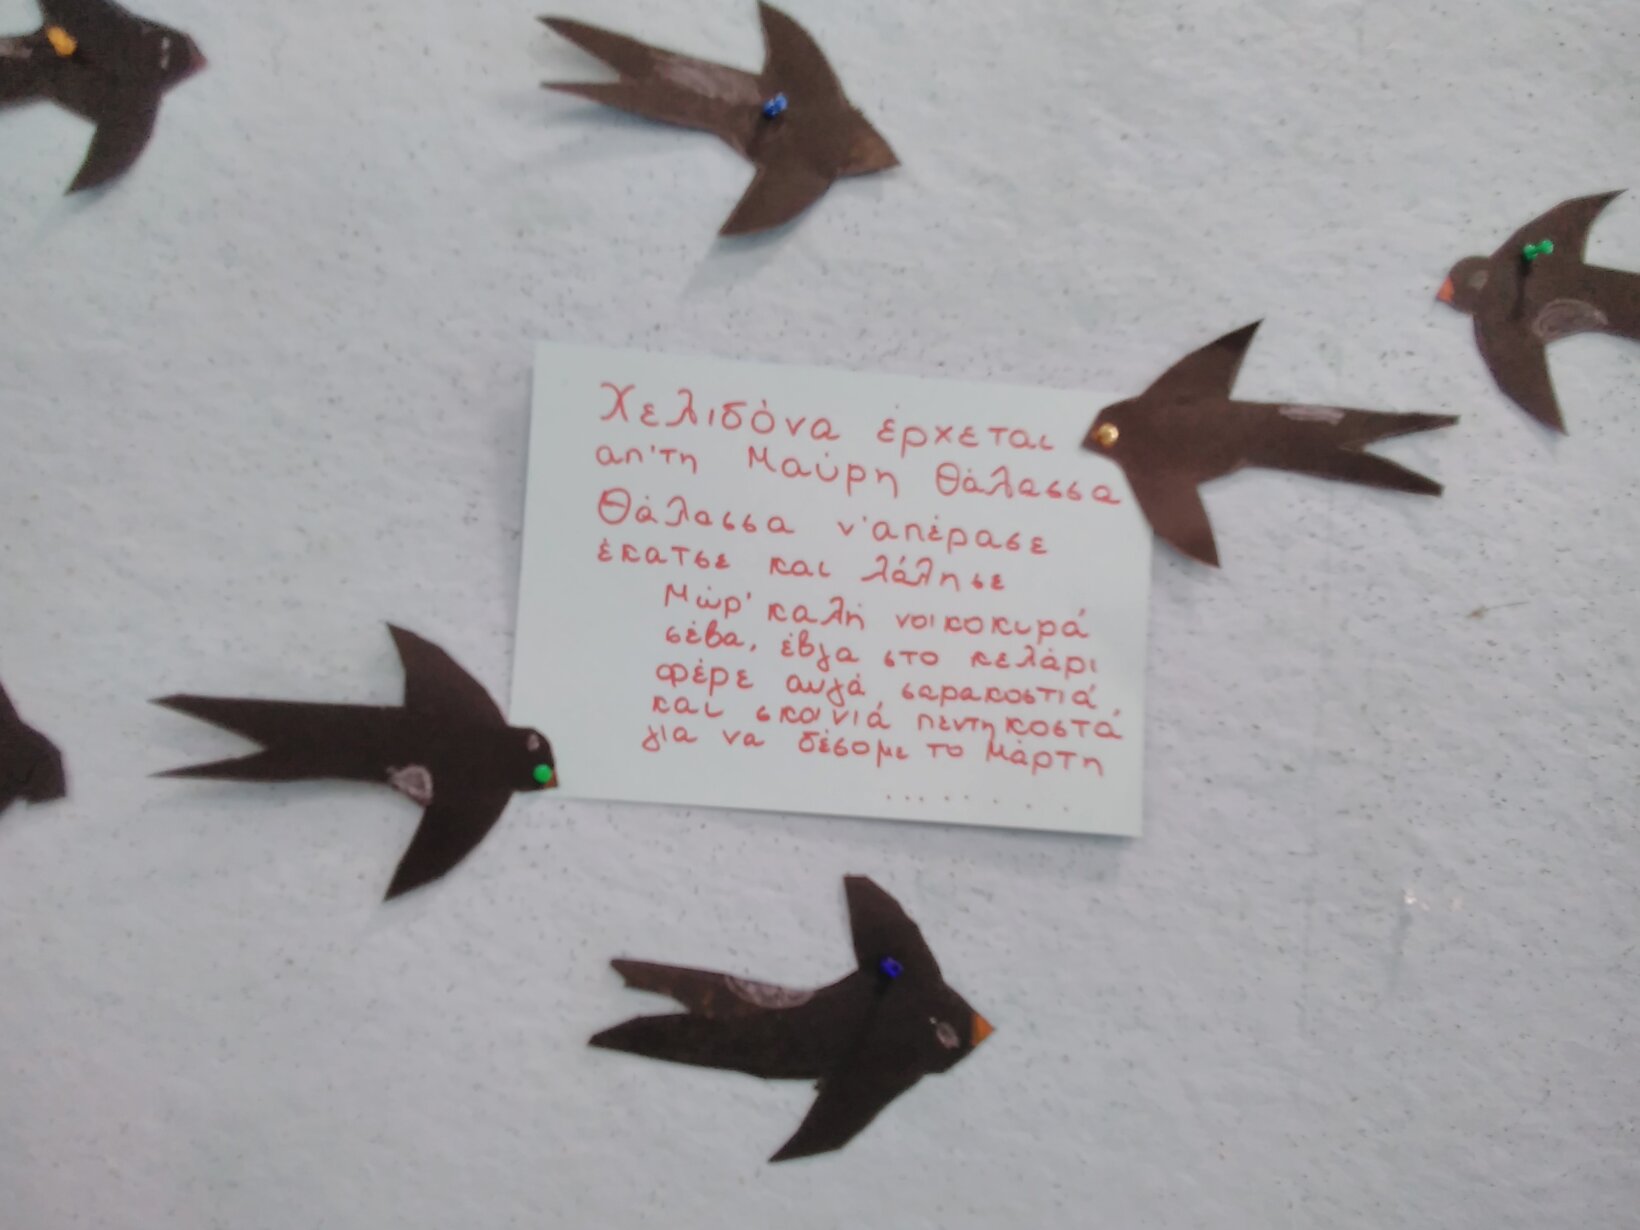 Χελιδόνα έρχεται
απ'τη Μαύρη Θάλασσα
Θάλασσα ν'απέρασε
έκατσε και λάλησε
Μώρ' καλή νοικοκυρά
σέβα, έβγα στο κελάρι
φέρε αυγά σαρακοστιά,
και σκοινιά πεντηκοστά
για να δέσομε το Μάρτη
........